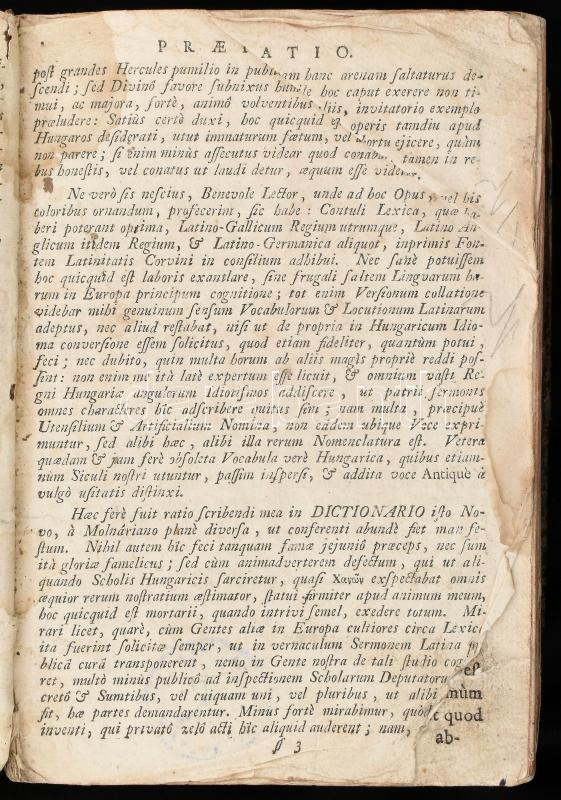 PRÆFATIO.
post grandes Hercules pumilio in publicam hanc arenam saltaturus de-
scendi; sed Divinô favore subnixus humile hoc caput exerere non ti-
mui, ac majora, fortè, animô volventibus aliis, invitatorio exemplo
præludere: Satiùs certè duxi, hoc quicquid est operis tamdiu apud
Hungaros desiderati, utut immaturum fœtum, vel abortu ejicere, quàm
non parere; si enim minùs assecutus videar quod conabar, tamen in re-
bus honestis, vel conatus ut laudi detur, æquum esse videtur.
Ne verò sis nescius, Benevole Lector, unde ad hoc Opus, vel his
coloribus ornandum, profecerim, sic habe: Contuli Lexica, quæ ha-
beri poterant optima, Latino-Gallicum Regium utrumque, Latino An-
glicum itidem Regium, & Latino-Germanica aliquot, inprimis Fon-
tem Latinitatis Corvini in consilium adhibui. Nec sanè potuissem
hoc quicquid est laboris exantlare, sine frugali saltem Lingvarum ha-
rum in Europa principum cognitione; tot enim Versionum collatione
videbar mihi genuinum sensum Vocabulorum & Locutionum Latinarum
adeptus, nec aliud restabat, nisi ut de propria in Hungaricum Idio-
ma conversione essem solicitus, quod etiam fideliter, quantùm potui,
feci; nec dubito, quin multa horum ab aliis magis propriè reddi pos-
sint: non enim mi ità latè expertum esse licuit, & omnium vasti Re-
gni Hungariæ angulorum Idiotismos addiscere, ut patrii sermonis
omnes characteres hîc adscribere quitus sim; nam multa, præcipuè
Utensilium & Artificialium Nomina, non eâdem ubique Voce expri-
muntur, sed alibi hæc, alibi illa rerum Nomenclatura est. Vetera
quædam & jam ferè obsoleta Vocabula verè Hungarica, quibus etiam-
nùm Siculi nostri utuntur, passim inspersi, & addita voce Antiquè à
vulgò usitatis distinxi.
Hæc ferè fuit ratio scribendi mea in DICTIONARIO isto No-
vo, à Molnáriano planè diversa, ut conferenti abundè fiet manife-
stum. Nihil autem hîc feci tanquam famæ jejuniô præceps, nec sum
ità gloriæ famelicus; sed cùm animadverterem defectum, qui ut ali-
quando Scholis Hungaricis sarciretur, quasi Χαγῶν exspectabat omnis
æquior rerum nostratium æstimator, statui firmiter apud animum meum,
hoc quicquid est mortarii, quando intrivi semel, exedere totum. Mi-
rari licet, quarè, cùm Gentes aliæ in Europa cultiores circa Lexica
ita fuerint solicitæ semper, ut in vernaculum Sermonem Latina pu-
blicâ curâ transponerent, nemo in Gente nostra de tali studio cogita-
ret, multò minùs publicô ad inspectionem Scholarum Deputatorum
cretô & Sumtibus, vel cuiquam uni, vel pluribus, ut alibi
fit, hæ partes demandarentur. Minus fortè mirabimur, quòd
inventi, qui privatô zelô acti hîc aliquid auderent; nam,
est
mùm
quod
ab-
3